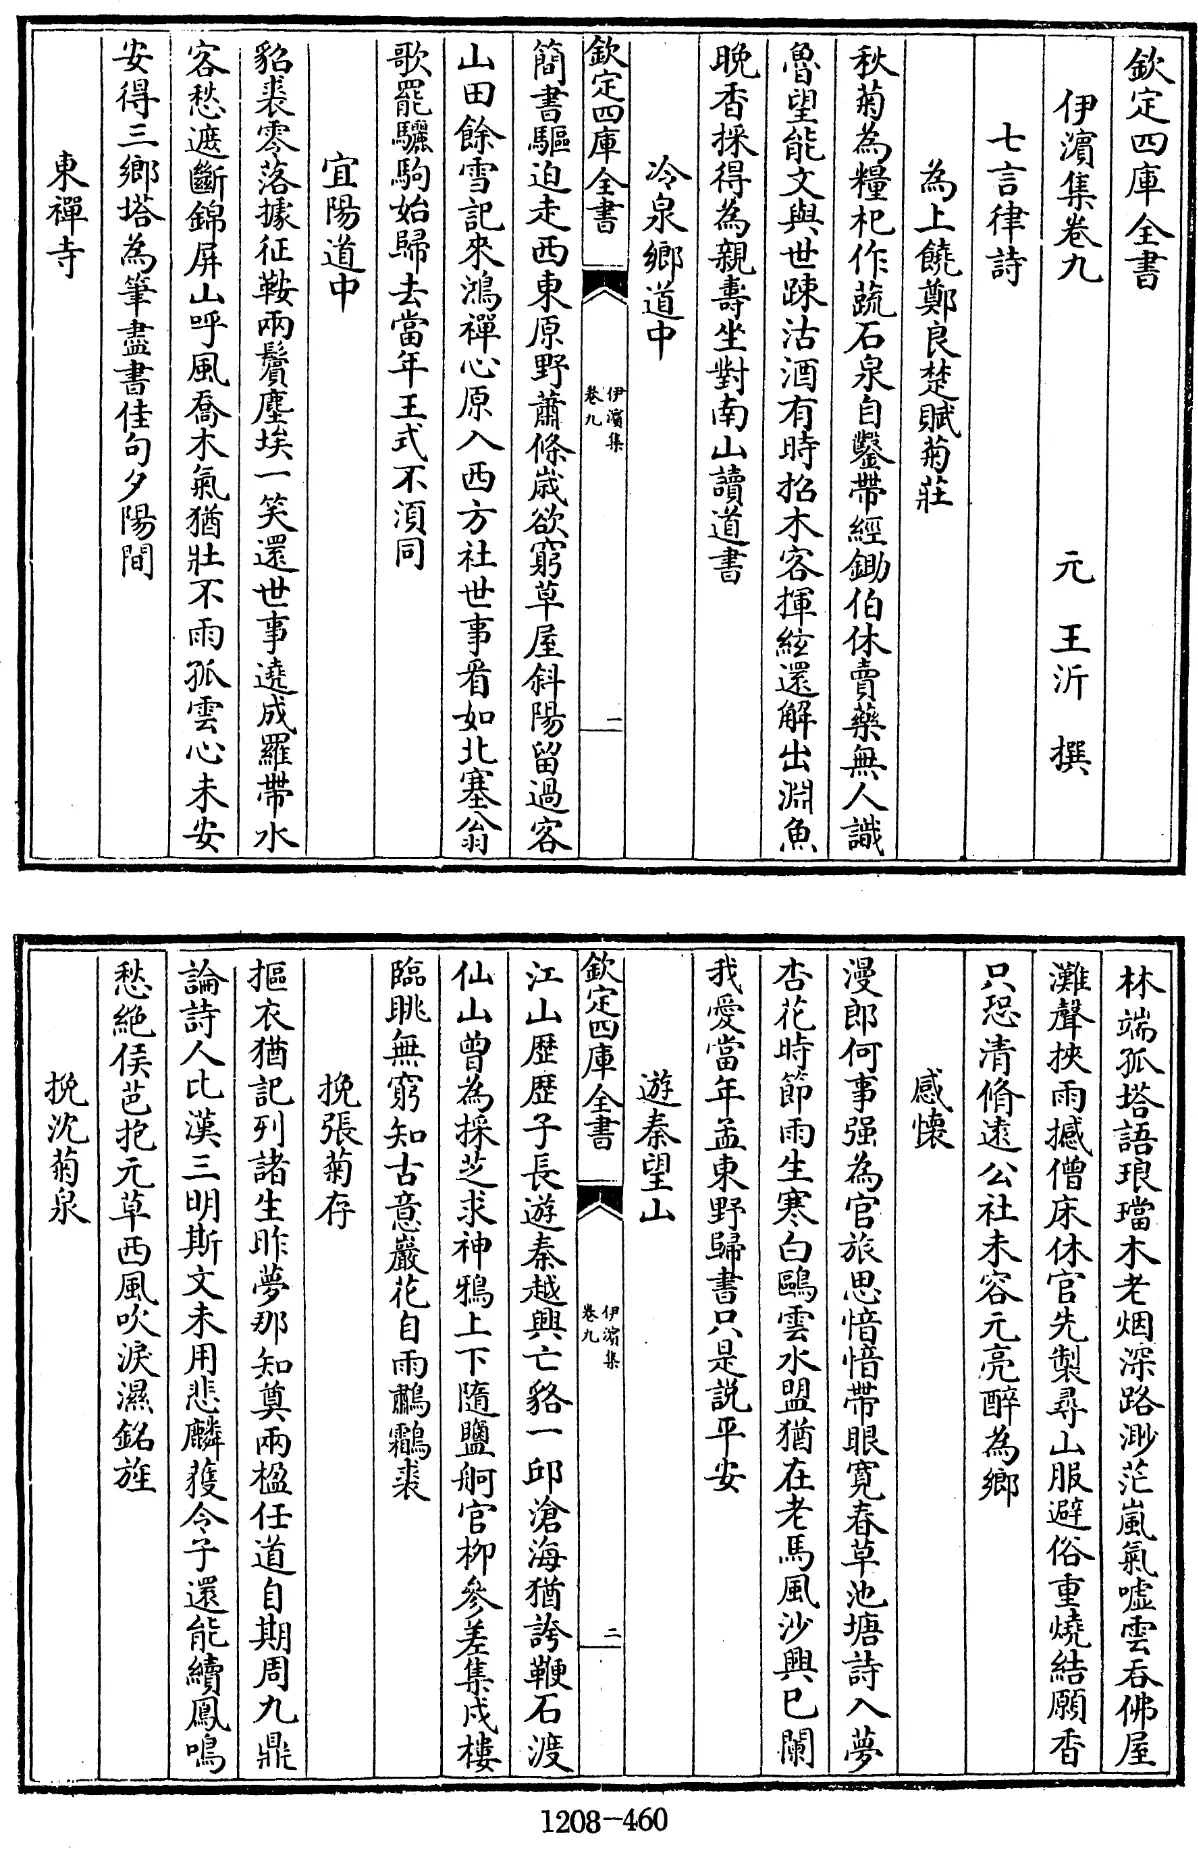 欽定四庫全書
伊濱集卷九
元 王沂 撰
七言律詩
為上饒鄭良楚賦菊莊
秋菊為糧杞作蔬石泉自鑿帶經鋤伯休賣藥無人識
魯望能文與世踈沽酒有時招木客揮絃還解出淵魚
晚香採得為親壽坐對南山讀道書
冷泉鄉道中
欽定四庫全書
伊濱集
卷九
一
簡書驅迫走西東原野蕭條歲欲窮草屋斜陽留過客
山田餘雪記來鴻禪心原入西方社世事看如北塞翁
歌罷驪駒始歸去當年王式不湏同
宜陽道中
貂裘零落據征鞍兩鬢塵埃一笑還世事遶成羅帶水
客愁遮斷錦屏山呼風喬木氣猶壯不雨孤雲心未安
安得三鄉塔為筆盡書佳句夕陽間
東禪寺
林端孤塔語琅璫木老烟深路渺茫嵐氣嘘雲吞佛屋
灘聲挾雨撼僧床休官先製尋山服避俗重燒結願香
只恐清脩逺公社未容元亮醉為鄉
感懷
漫郎何事强為官旅思愔愔帶眼寛春草池塘詩入夢
杏花時節雨生寒白鷗雲水盟猶在老馬風沙興已闌
我愛當年孟東野歸書只是説平安
遊秦望山
欽定四庫全書
伊濱集
卷九
二
江山歴歴子長遊秦越興亡貉一邱滄海猶誇鞭石渡
仙山曾為採芝求神鴉上下隨鹽舸官柳參差集戍樓
臨眺無窮知古意巖花自雨鷫鸘裘
挽張菊存
摳衣猶記列諸生昨夢那知奠兩楹任道自期周九鼎
論詩人比漢三明斯文未用悲麟獲令子還能續鳳鳴
愁絶侯芭抱元草西風吹淚濕銘旌
挽沈菊泉
1208-460